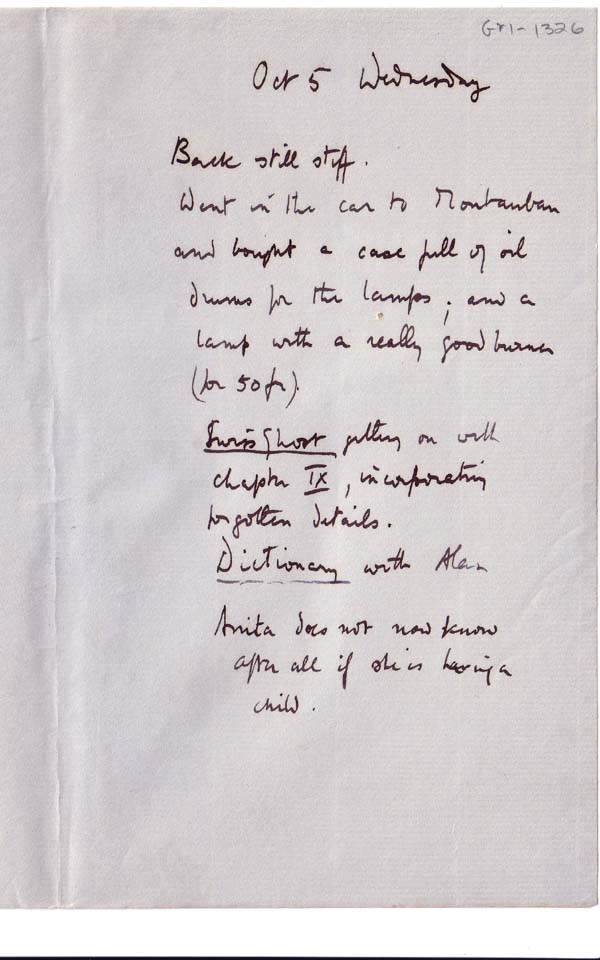 Gr1-1326
Oct 5 Wednesday
Back still stiff.
Went in the car to Montauban
and bought a case full of oil
drums for the lamps; and a
lamp with a really good burner
(for 50 fr).
Swiss Ghost getting on with
chapter IX, incorporating
forgotten details.
Dictionary with Alan
Anita does not now know
after all if she is having a
child.